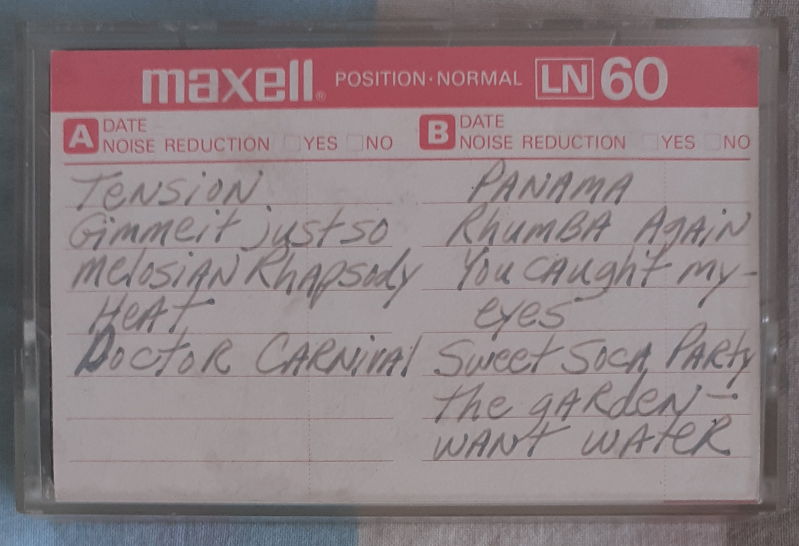 maxell® POSITION·NORMAL LN 60
A DATE
NOISE REDUCTION YES NO
TENSION
Gimmeit just so
Melosian Rhapsody
Heat
Doctor Carnival
B DATE
NOISE REDUCTION YES NO
PANAMA
Rhumba Again
You caught my-
eyes
Sweet Soca Party
The garden-
want water